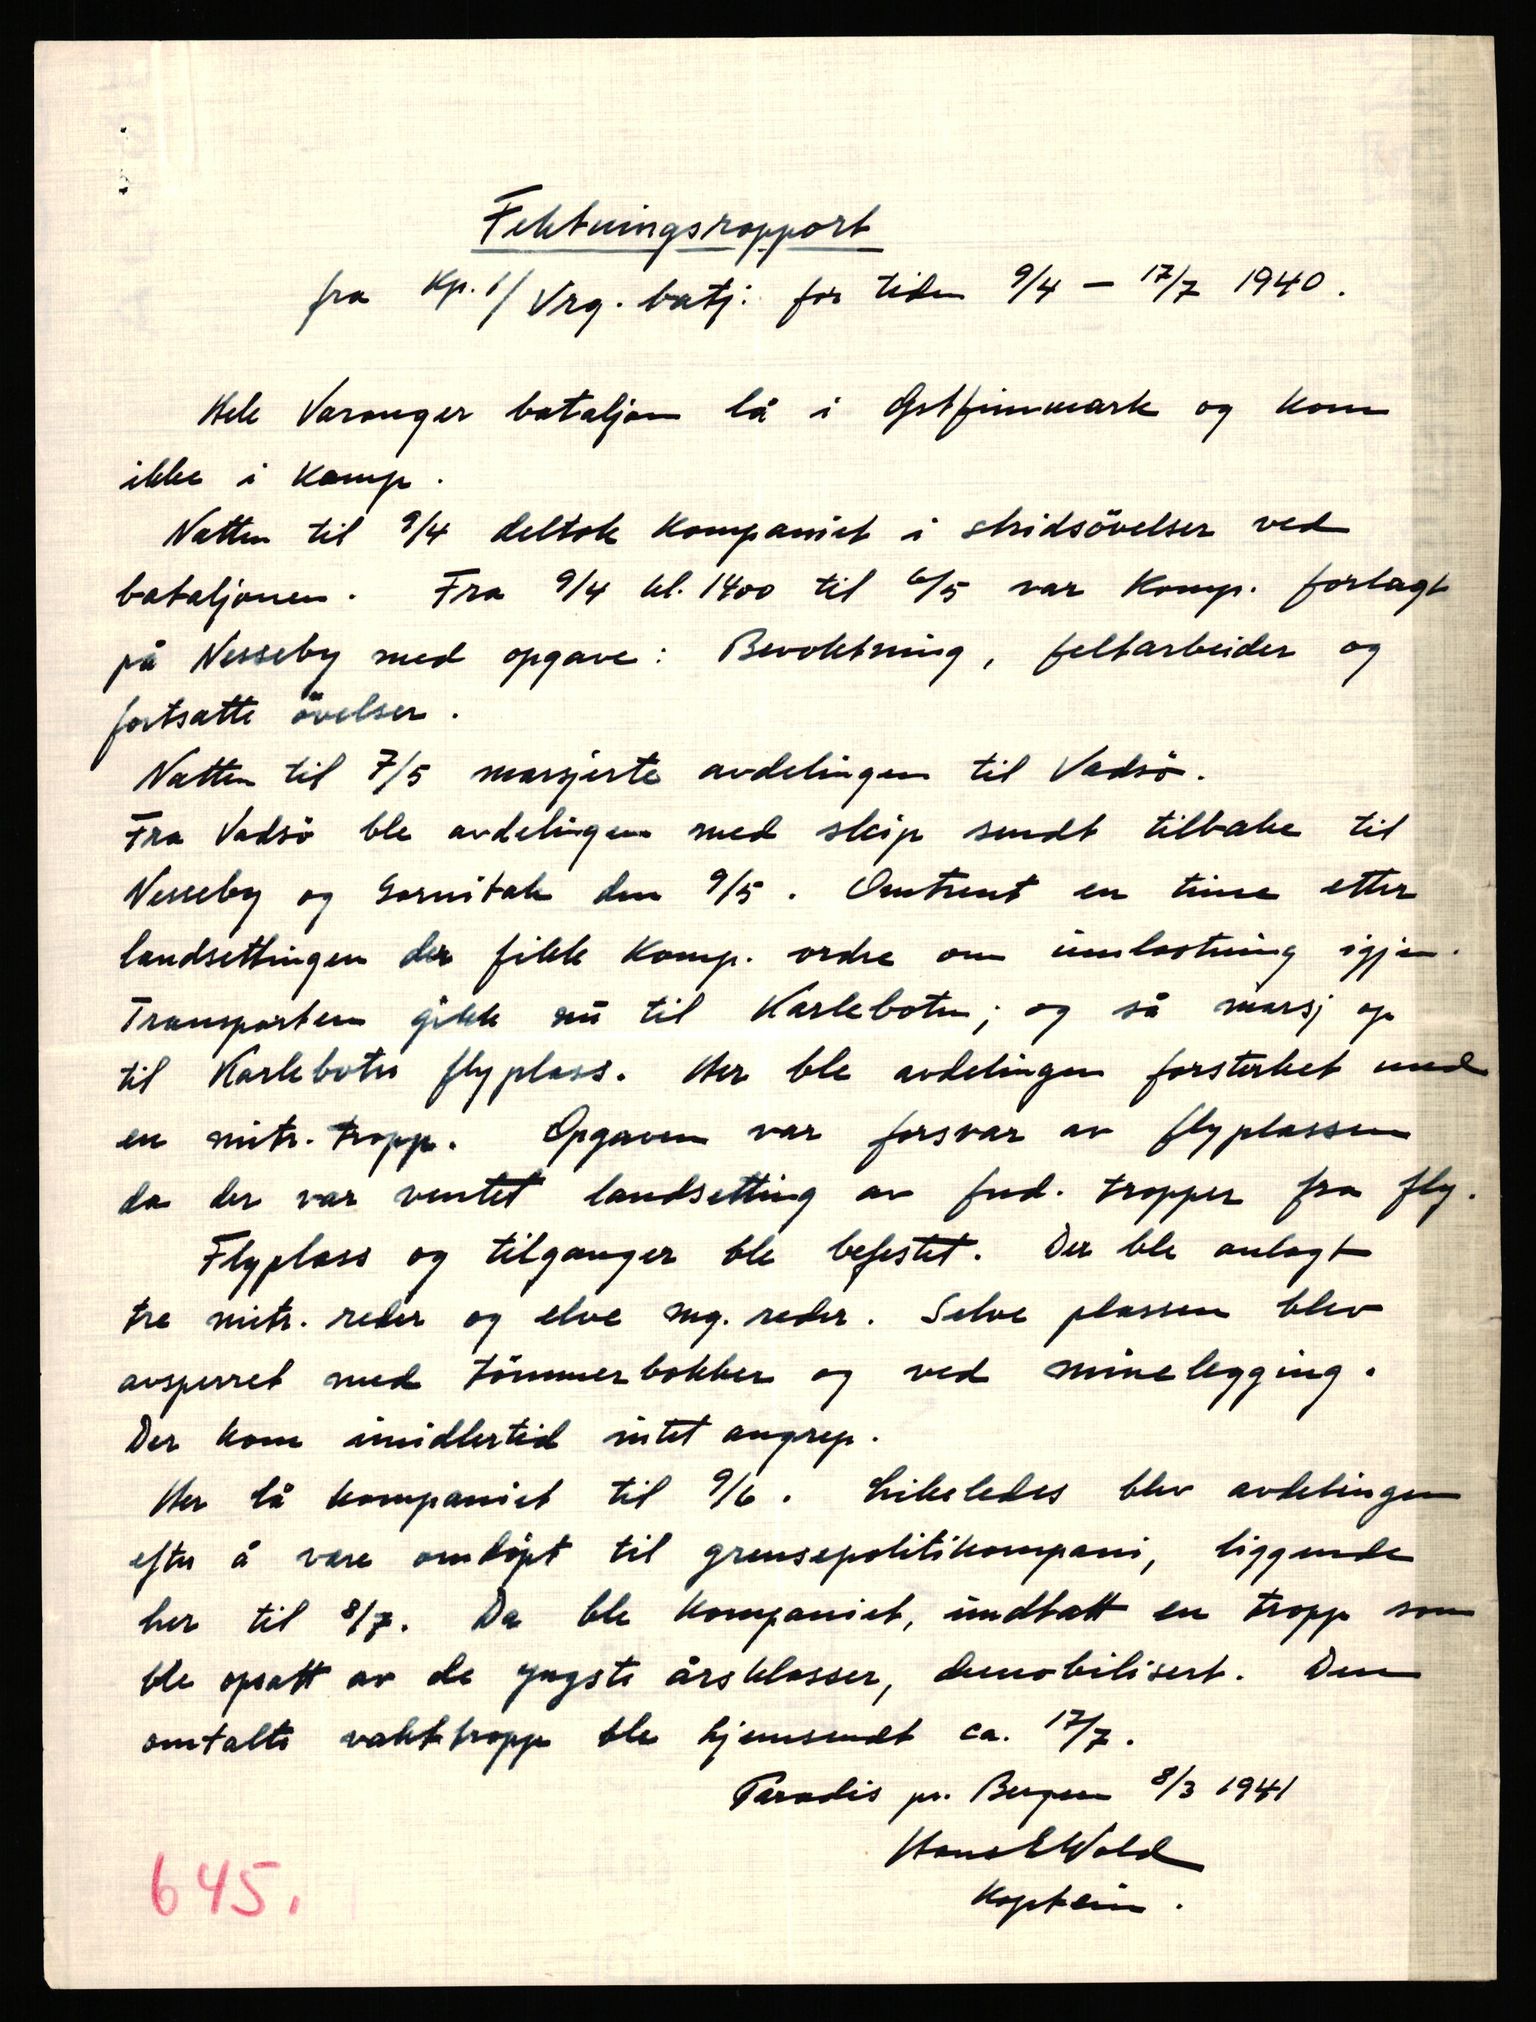 Fektningsrapport
fra Kp. 1/Vrg. batj. for tiden 9/4 – 17/7 1940.
Hele Varanger bataljon lå i Østfinnmark og kom
ikke i kamp.
Natten til 9/4 deltok kompaniet i stridsövelser ved
bataljonen. Fra 9/4 kl. 1400 til 6/5 var komp. forlagt
på Nesseby med opgave: Bevoktning, feltarbeider og
fortsatte övelser.
Natten til 7/5 marsjerte avdelingen til Vadsö.
Fra Vadsö ble avdelingen med skip sendt tilbake til
Nesseby og Gornitak den 9/5. Omtrent en time etter
landsettingen der fikk komp. ordre om innlastning igjen.
Transporten gikk nu til Karlebotn; og så marsj op
til Karlebotn flyplass. Her ble avdelingen forsterket med
en mitr. tropp. Opgaven var forsvar av flyplassen
da der var ventet landsetting av fiend. tropper fra fly.
Flyplass og tilganger ble befestet. Der ble anlagt
tre mitr. reder og elve mg. reder. Selve plassen blev
avsperret med tömmerbokker og ved minelegging.
Der kom imidlertid intet angrep.
Her lå kompaniet til 9/6. Likeledes blev avdelingen
efter å være omdöpt til grensepolitikompani, liggende
her til 8/7. Da ble kompaniet, undtatt en tropp som
ble opsatt av de yngste årsklasser, demobilisert. Den
omtalte vakttropp ble hjemsendt ca. 17/7.
Paradis pr. Bergen 8/3 1941
Hans E Wold
Kaptein.
645.